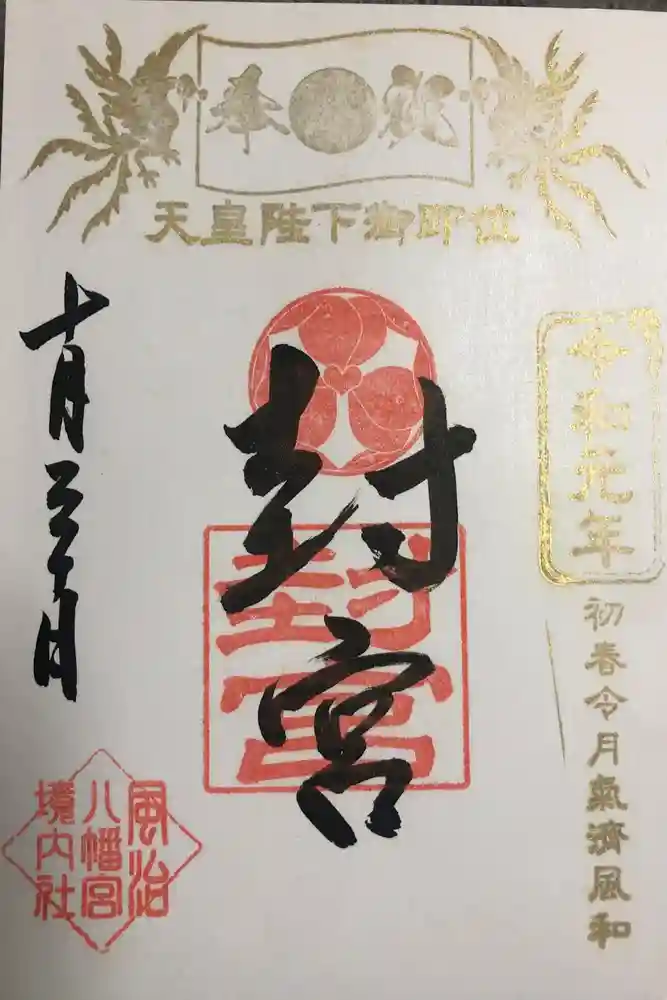 奉祝
天皇陛下御即位
令和元年
初春令月氣淑風和
封宮
封宮
十月三十日
風治
八幡宮
境内社